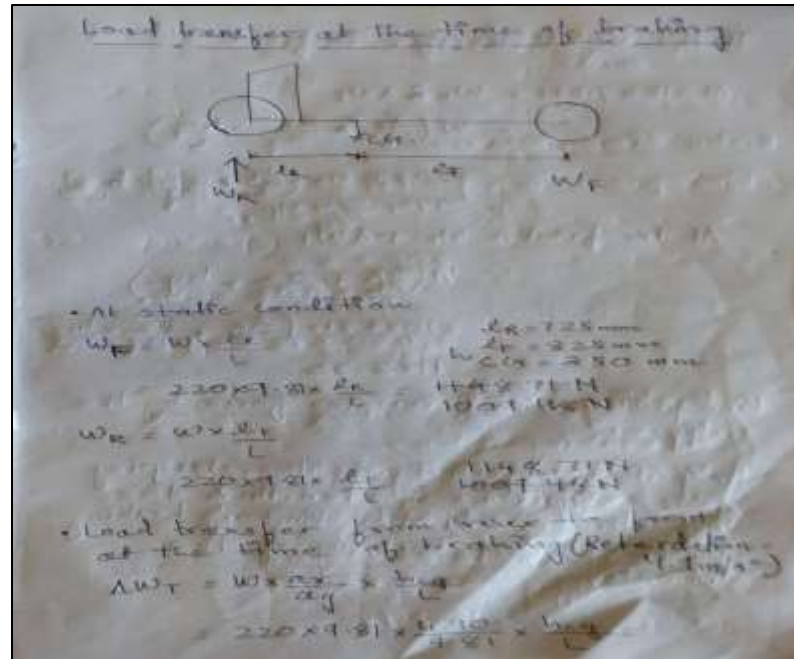 Load transfer at the time of braking
C.G.
lR lF
WR WF
• At static condition
WF = W × lR/L
lR = 725 mm
lF = 825 mm
hCG = 350 mm
220×9.81× lR/L
WR = W × lF/L
220×9.81× lF/L
• Load transfer from to front
at the time of braking (Retardation
ΔWT = W × ax/ag × hcg/L
= 220×9.81× /9.81 × hcg/L